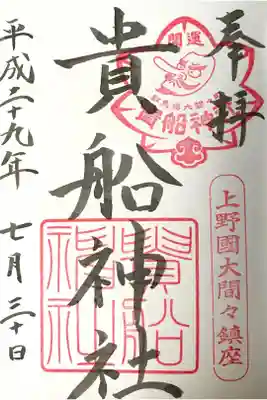 奉拝
開運
貴船神社
上野國大間々鎮座
貴船神社
貴船神社
平成二十九年 七月三十日